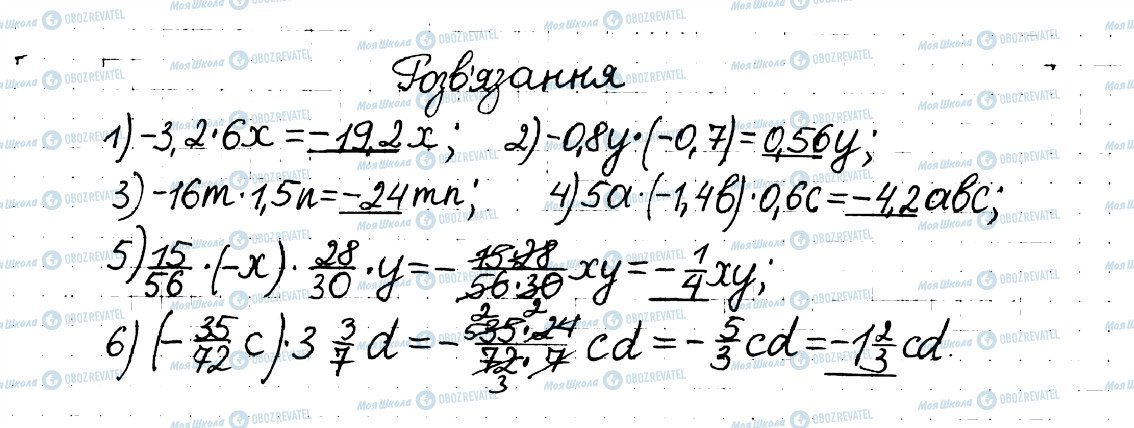 Розв'язання
1) -3,2·6x = -19,2x; 2) -0,8y·(-0,7) = 0,56y;
3) -16m·1,5n = -24mn; 4) 5a·(-1,4b)·0,6c = -4,2abc;
5) 15/56·(-x)·28/30·y = -15·28/56·30 xy = -1/4 xy;
6) (-35/72 c)·3 3/7 d = -35·24/72·7 cd = -5/3 cd = -1 2/3 cd.